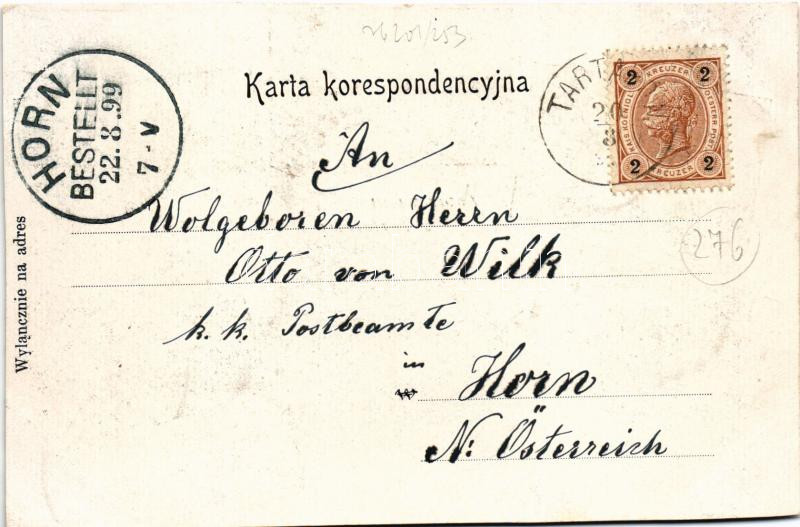 26201/253
Karta korespondencyjna
HORN
BESTELLT
22.8.99
7-V
TARTA
20
8
2 KREUZER 2
KAIS. KOENIGL.
OESTERR. POST
2 KREUZER 2
An
Wolgeboren Herrn
Otto von Wilk
k. k. Postbeamte
in
Horn
N: Österreich
276
Wyłącznie na adres